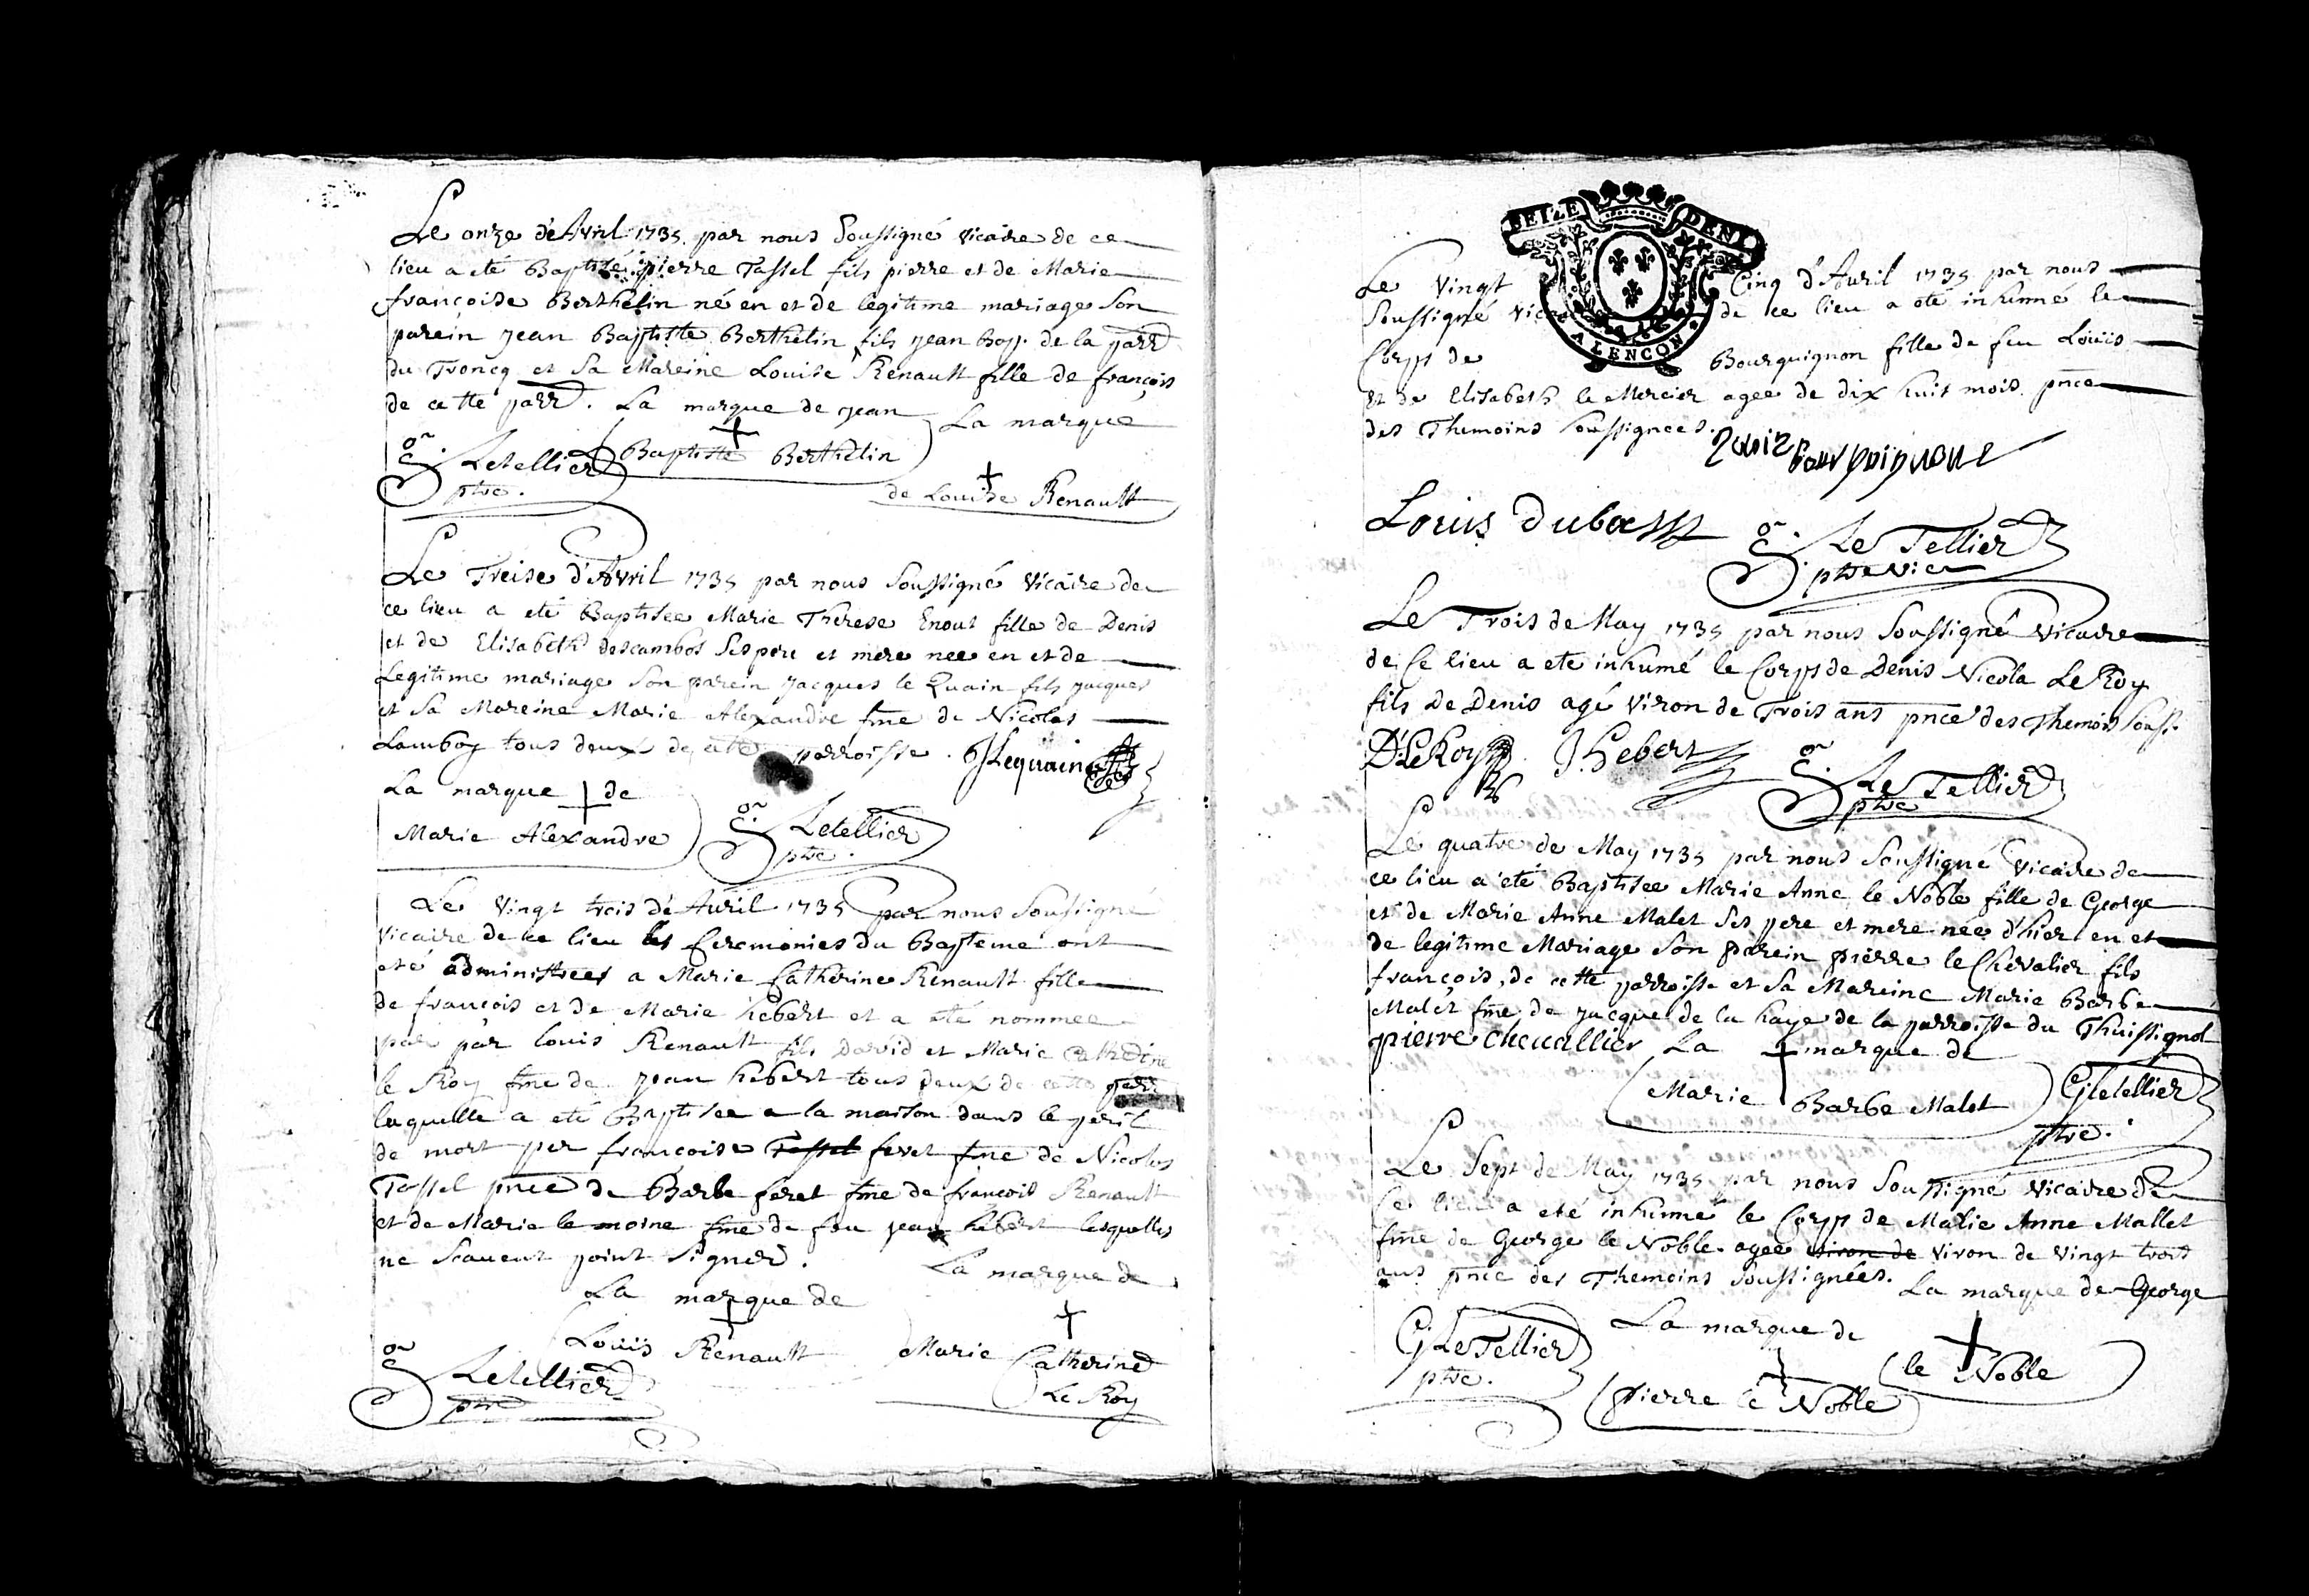 Le onze d'Avril 1735 par nous Soussigné Vicaire de ce
lieu a eté Baptisé pierre Tassel fils pierre et de Marie
françoise Berthelin né en et de legitime mariage Son
parein jean Baptiste Berthelin fils jean Bap. de la parr
du Troncq et Sa Mareine Louise Renault fille de françois
de cette parr. La marque de jean
La marque
Baptiste Berthelin
Letellier
ptre.
de Louise Renault
Le Treise d'Avril 1735 par nous Soussigné Vicaire de
ce lieu a eté Baptisee Marie Therese Enout fille de Denis
et de Elisabeth descambos Ses pere et mere nee en et de
Legitime mariage Son parein jacques le Quain fils jacques
et Sa Mareine Marie Alexandre fme de Nicolas
Lamboy tous deux de cette parroisse. JLequain
La marque de
Marie Alexandre
Letellier
ptre.
Le Vingt trois d'Avril 1735 par nous Soussigné
Vicaire de ce lieu les Ceremonies du Bapteme ont
eté administrees a Marie Catherine Renault fille
de françois et de Marie hébert et a eté nommee
par par louis Renault fils David et Marie Catherine
le Roy fme de jean hebert tous deux de cette parr
laquelle a eté Baptisee a la maison dans le peril
de mort per françoise Tassel feret fme de Nicolas
Tassel pnce de Barbe feret fme de françois Renault
et de Marie le moine fme de feu jean hebert lesquelles
ne Scavent point Signer.
La marque de
La marque de
Louis Renault
Marie Catherine
Le Roy
Letellier
ptre
SEIZE DENI
ALENCON
Le Vingt Cinq d'Avril 1735 par nous
Soussigné Vic de ce lieu a eté inhumé le
Corps de Bourguignon fille de feu Louis
Et de Elisabeth le Mercier agee de dix huit mois pnce
des Themoins Soussignees.
Louis Bourguignon
Louis Dubosst
Le Tellier
ptre vic
Le Trois de May 1735 par nous Soussigné Vicaire
de Ce lieu a ete inhumé le Corps de Denis Nicola Le Roy
fils de Denis agé Viron de Trois ans pnce des Themoins Souss.
D. LeRoy J hebert
Le Tellier
ptre
Le quatre de May 1735 par nous Soussigné Vicaire de
ce lieu a eté Baptisee Marie Anne le Noble fille de George
et de Marie Anne Malet Ses pere et mere née d'hier en et
de legitime Mariage Son parein pierre le Chevalier fils
françois, de cette parroisse et Sa Mareine Marie Barbe
Malet fme de jacque de la haye de la parroisse du Thuissignol
pierre chevallier La marque de
Marie Barbe Malet
GLetellier
ptre.
Le Sept de May 1735 par nous Soussigné Vicaire de
Ce lieu a eté inhumé le Corps de Marie Anne Mallet
fme de George le Noble agee viron de viron de Vingt trois
ans pnce des Themoins Soussignées. La marque de George
La marque de
le Noble
GLeTellier
ptre.
pierre le Noble